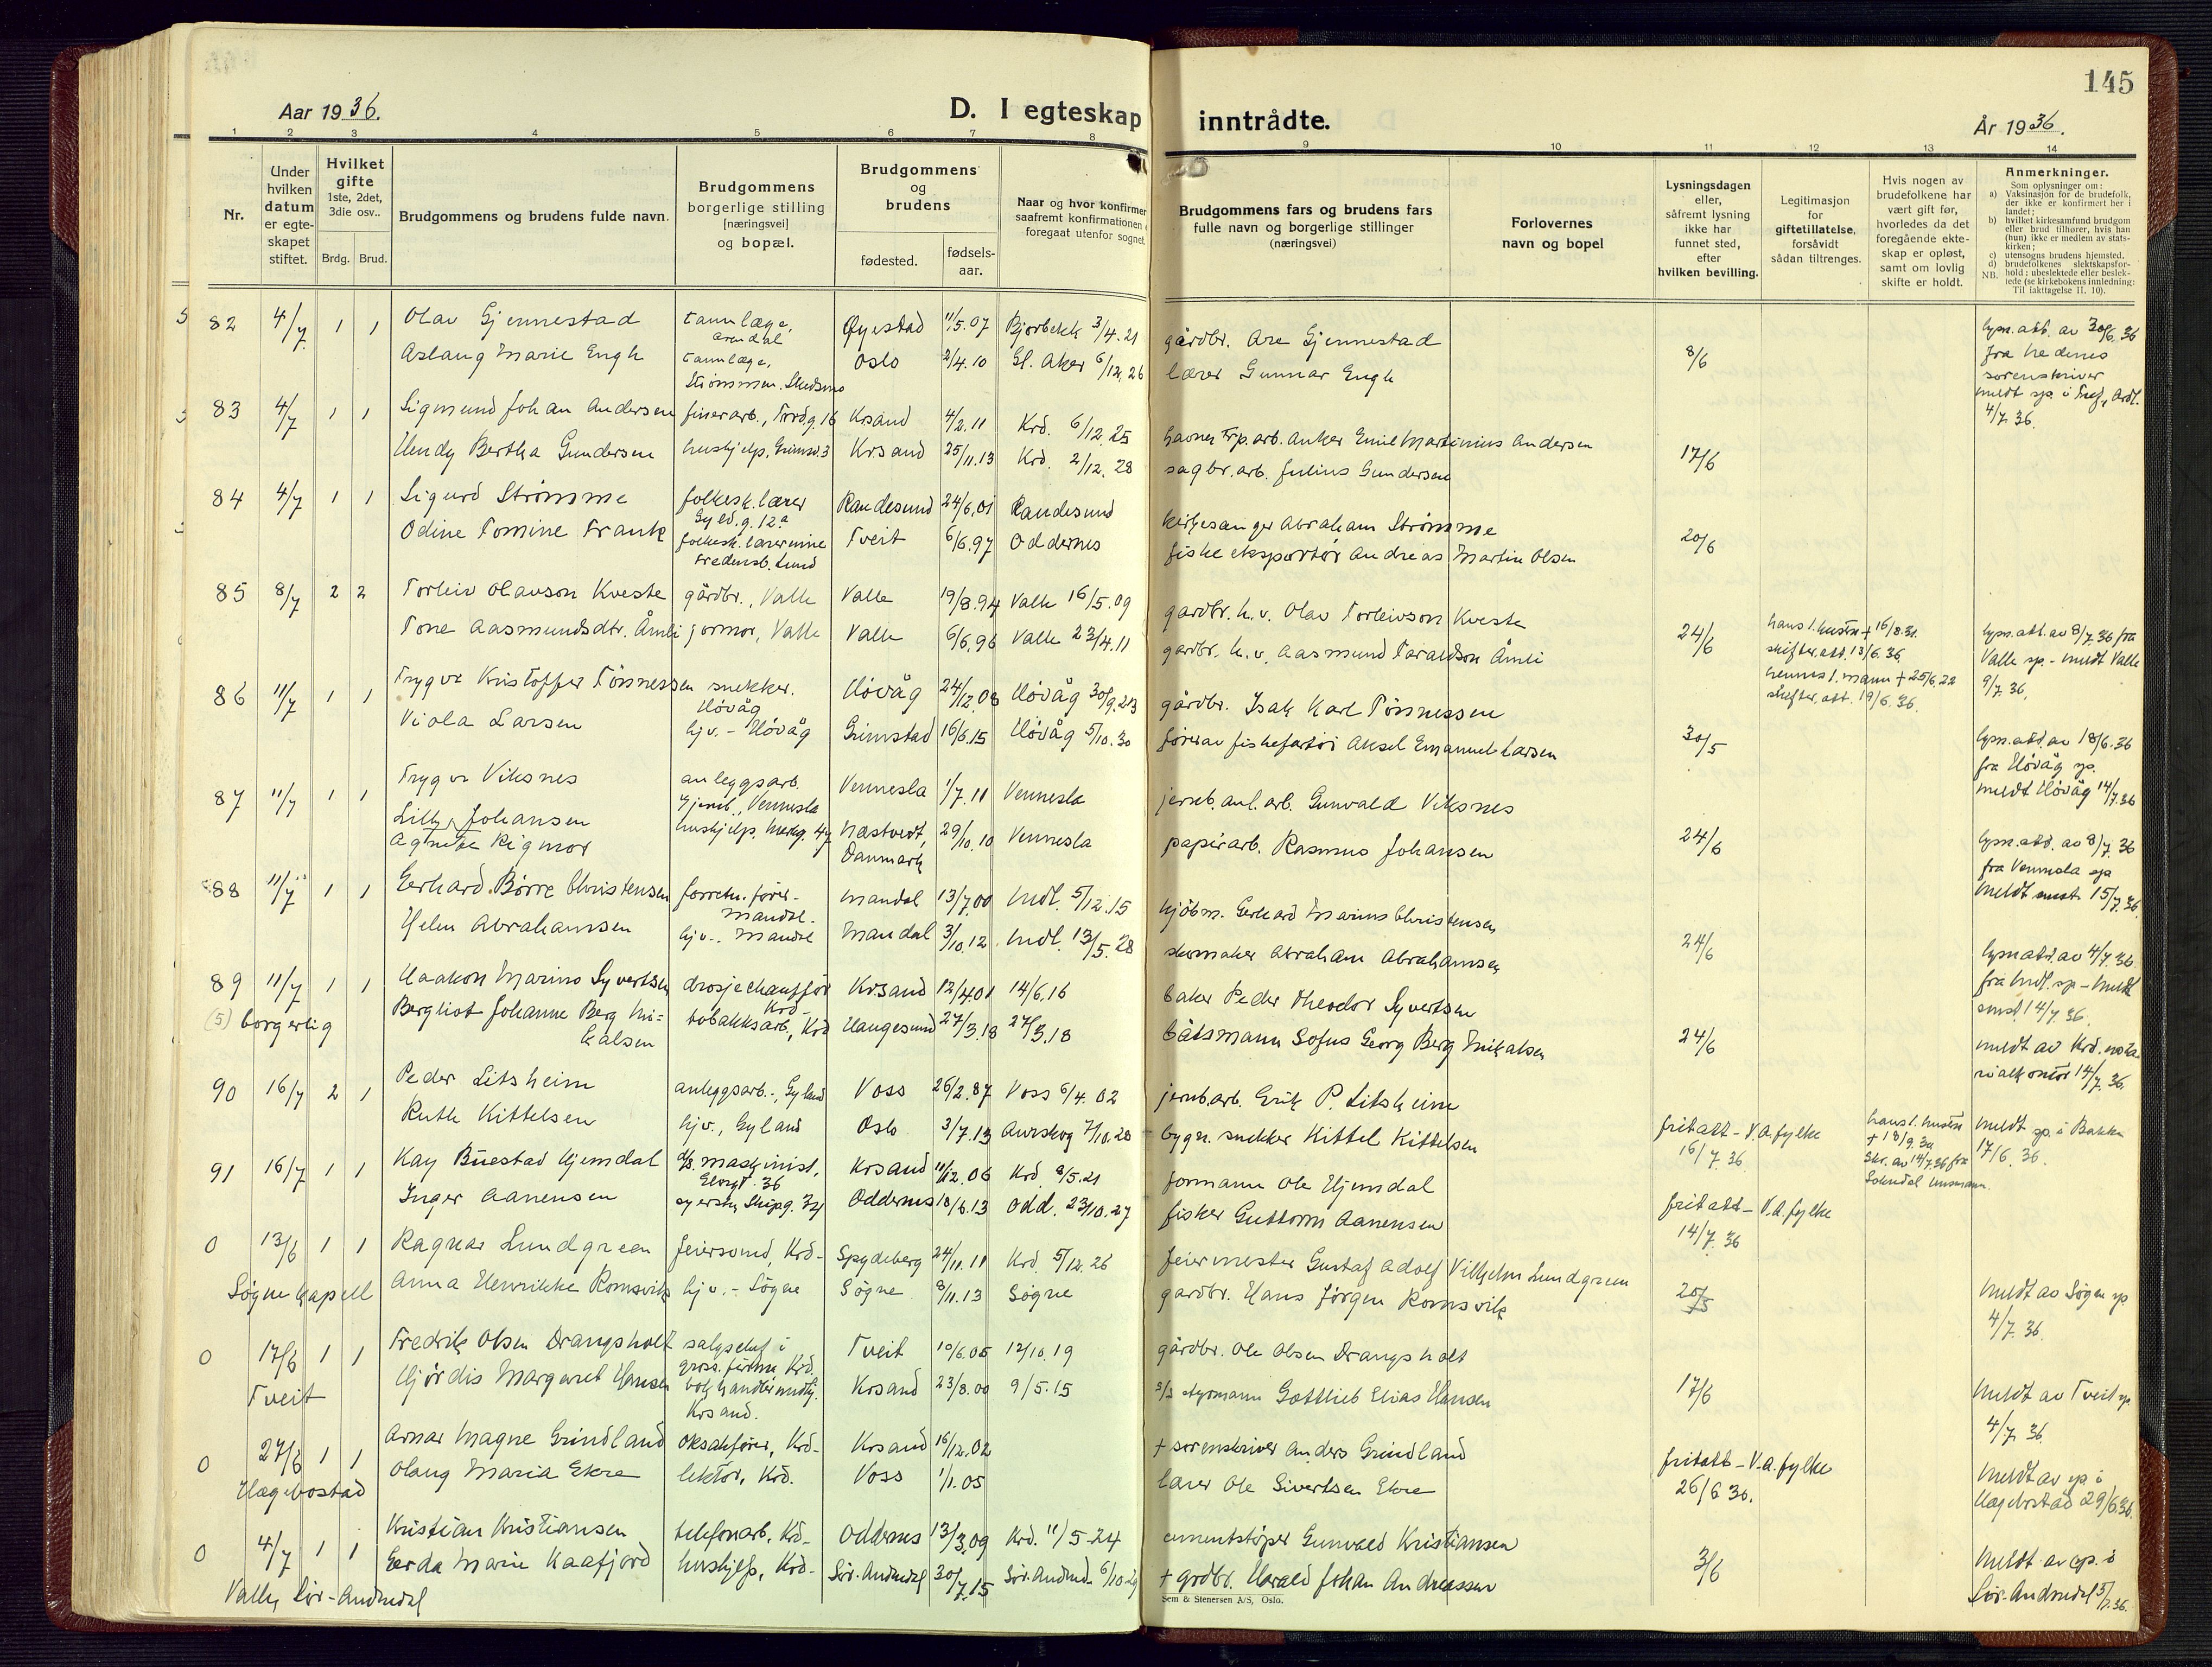 145
Aar 1936.
D. I egteskap inntrådte.
År 1936.
1 2 3 4 5 6 7 8 9 10 11 12 13 14
Nr.
Under hvilken datum er egteskapet stiftet.
Hvilket gifte 1ste, 2det, 3die osv..
Brdg. Brud.
Brudgommens og brudens fulde navn.
Brudgommens borgerlige stilling [næringsvei] og bopæl.
Brudgommens og brudens
fødested. fødsels-aar.
Naar og hvor konfirmer
saafremt konfirmationen
foregaat utenfor sognet
Brudgommens fars og brudens fars fulle navn og borgerlige stillinger (næringsvei)
Forlovernes navn og bopel
Lysningsdagen eller, såfremt lysning ikke har funnet sted, efter hvilken bevilling.
Legitimasjon for giftetillatelse, forsåvidt sådan tiltrenges.
Hvis nogen av brudefolkene har vært gift før, hvorledes da det foregående ekteskap er opløst, samt om lovlig skifte er holdt.
Anmerkninger.
Som oplysninger om:
a) Vaksinasjon for de brudefolk, der ikke er konfirmert her i landet;
b) hvilket kirkesamfund brudgom eller brud tilhører, hvis han (hun) ikke er medlem av statskirken;
c) utensogns brudens hjemsted.
d) brudefolkenes slektskapsforhold: ubeslektede eller beslektede (se kirkebokens innledning: Til iakttagelse II. 10).
NB.
82 4/7 1 1 Olav Gjennestad tannlæge, Arendal Øyestad 11/5.07 Bjorbekk 3/4.21 gårdbr. Are Gjennestad
Aslaug Marie Engh tannlæge, Strømmen. Skedsmo Oslo 2/4.10 Gl. Aker 6/12.26 lærer Gunnar Engh 8/6
lysn.att. av 30/6.36 fra Nedenes sorenskriver meldt sp. i Tref., Ardl. 4/7.36.
83 4/7 1 1 Sigmund Johan Andersen finerarb., Tordg. 16 Krsand 4/2.11 Krd. 6/12.25 havnetrp.arb. Anker Emil Martinius Andersen
Hendy Bertha Gundersen hushjelp, Grimsd. 3 Krsand 25/11.13 Krd. 2/12.28 sagbr.arb. Julius Gundersen 17/6
84 4/7 1 1 Sigurd Strømme folkesk.lærer Gyld.g. 12a Randesund 24/6.01 Randesund kirkesanger Abraham Strømme
Odine Tomine Frank folkesk.lærerinne Fredensb. Lund Tveit 6/6.97 Oddernes fiskeeksportør Andreas Martin Olsen 20/6
85 8/7 2 2 Torleiv Olavson Kveste gårdbr., Valle Valle 19/8.94 Valle 16/5.09 gårdbr. h.v. Olav Torleivson Kveste
Tone Aasmundsdtr. Åmli jormor, Valle Valle 6/6.96 Valle 23/4.11 gårdbr. h.v. Aasmund Taraldson Åmli 24/6
hans 1. hustru + 16/8.31. skifter.att. 13/6.36. hennes 1. mann + 25/6.22 skifter.att. 19/6.36.
lysn.att. av 8/7.36 fra Valle sp. - meldt Valle 9/7.36.
86 11/7 1 1 Trygve Kristoffer Tønnessen snekker. Høvåg Høvåg 24/12.08 Høvåg 30/9.23 gårdbr. Isak Karl Tønnessen
Viola Larsen hjv. - Høvåg Grimstad 16/6.15 Høvåg 5/10.30 fører av fiskefartøi Aksel Emanuel Larsen 30/5
lysn.att. av 18/6.36 fra Høvåg sp. meldt Høvåg 14/7.36
87 11/7 1 1 Trygve Viksnes anleggsarb. Gjeneb., Vennesla Vennesla 1/7.11 Vennesla jernb.anl.arb. Gunvald Viksnes
Lilly Johansen Agnete Rigmor hushjelp, Mark.g. 47 Næstvedt, Danmark 29/10.10 Vennesla papirarb. Rasmus Johansen 24/6
lysn.att. av 8/7.36 fra Vennesla sp meldt smst. 15/7.36
88 11/7 1 1 Gerhard Børre Christensen forretn.fører - Mandal. Mandal 13/7.00 Mdl. 5/12.15 kjøbm. Gerhard Marius Christensen
Helen Abrahamsen hjv. - Mandal Mandal 3/10.12 Mdl. 13/5.28 skomaker Abraham Abrahamsen 24/6
lysn.att. av 4/7.36 fra Mdl. sp - meldt smst. 14/7.36.
89 11/7 1 1 Haakon Marino Syvertsen drosjechauffør Krd- Krsand 12/4.01 14/6.16 baker Peder Theodor Syvertsen
(5) borgerlig Bergliot Johanne Berg Mikalsen tobakksarb., Krd Haugesund 27/3.18 27/3.18 båtsmann Sofus Georg Berg Mikalsen 24/6
meldt av Krd. notarialkontor 14/7.36.
90 16/7 2 1 Peder Litsheim anleggsarb. -, Gyland Voss 26/2.87 Voss 6/4.02 jernb.arb. Erik P. Litsheim
Ruth Kittelsen hjv., Gyland Oslo 3/7.13 Aurskog 7/10.28 bygn.snekker Kittel Kittelsen
fritatt - V.A. fylke 16/7.36
hans 1. hustru + 18/9.34 Skr. av 14/7.36 fra Sokndal lensmann.
meldt sp. i Bakke 17/6.36.
91 16/7 1 1 Kay Buestad Hjemdal d/s. maskinist, Elvegt. 36 Krsand 11/12.06 Krd. 8/5.21 formann Ole Hjemdal
Inger Aanensen syerske, Skipg. 34 Oddernes 18/6.13 Odd. 23/10.27 fisker Guttorm Aanensen
fritatt - V.A. fylke 14/7.36
0 13/6 1 1 Ragnar Lundgreen feiersvend, Krd- Spydeberg 24/11.11 Krd. 5/12.26 feiermester Gustaf Adolf Vilhelm Lundgreen
Søgne kapell Anna Henrikke Romsvik hjv. - Søgne Søgne 8/11.13 Søgne gårdbr. Hans Jørgen Romsvik 20/5
Meldt av Søgne sp 4/7.36.
0 17/6 1 1 Fredrik Olsen Drangsholt salgschef i gross.firma Krd. Tveit 10/6.05 12/10.19 gårdbr. Ole Olsen Drangsholt
Tveit Hjørdis Margaret Hansen bokhandlermedhj. Krsand. Krsand 23/8.00 9/5.15 s/s styrmann Gottlieb Elias Hansen 17/6
Meldt av Tveit sp 4/7.36
0 27/6 1 1 Arnar Magne Grindland o.r.saksfører, Krd- Krsand 16/12.02 + sorenskriver Anders Grindland
Hægebostad Olaug Maria Ekre lektor, Krd. Voss 1/1.05 lærer Ole Sivertsen Ekre
fritatt - V.A. fylke 26/6 36.
Meldt av sp i Hægebostad 29/6 36.
0 4/7 1 1 Kristian Kristiansen telefonarb. Krd- Oddernes 13/3.09 Krd. 11/5-24 cementstøper Gunvald Kristiansen
Valle, Sør-Audnedal Gerda Marie Kaafjord hushjelp, Krd- Sør-Audnedal 30/7.15 Sør.Audned. 6/10-29 + grdbr. Harald Johan Andreassen 3/6
Meldt av sp. i Sør-Audnedal 5/7.36.
Sem & Stenersen A/S, Oslo.